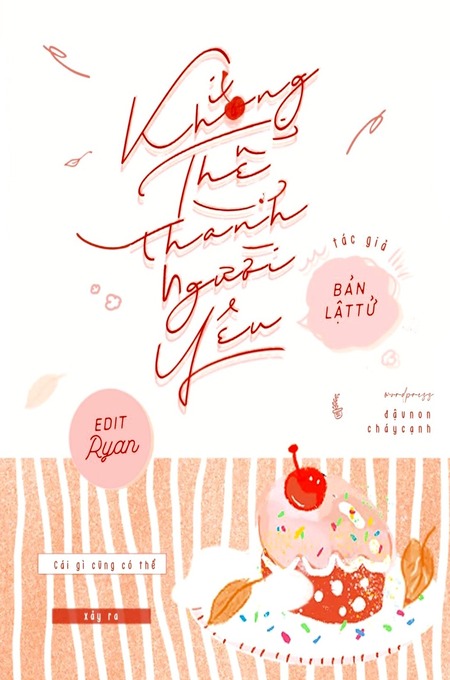 Không
Thể
thành
người
yêu
tác giả
BẢN
LẬT TỬ
wordpress
đậunon
cháycạnh
EDIT
Ryan
Cái gì cũng có thể
xảy ra